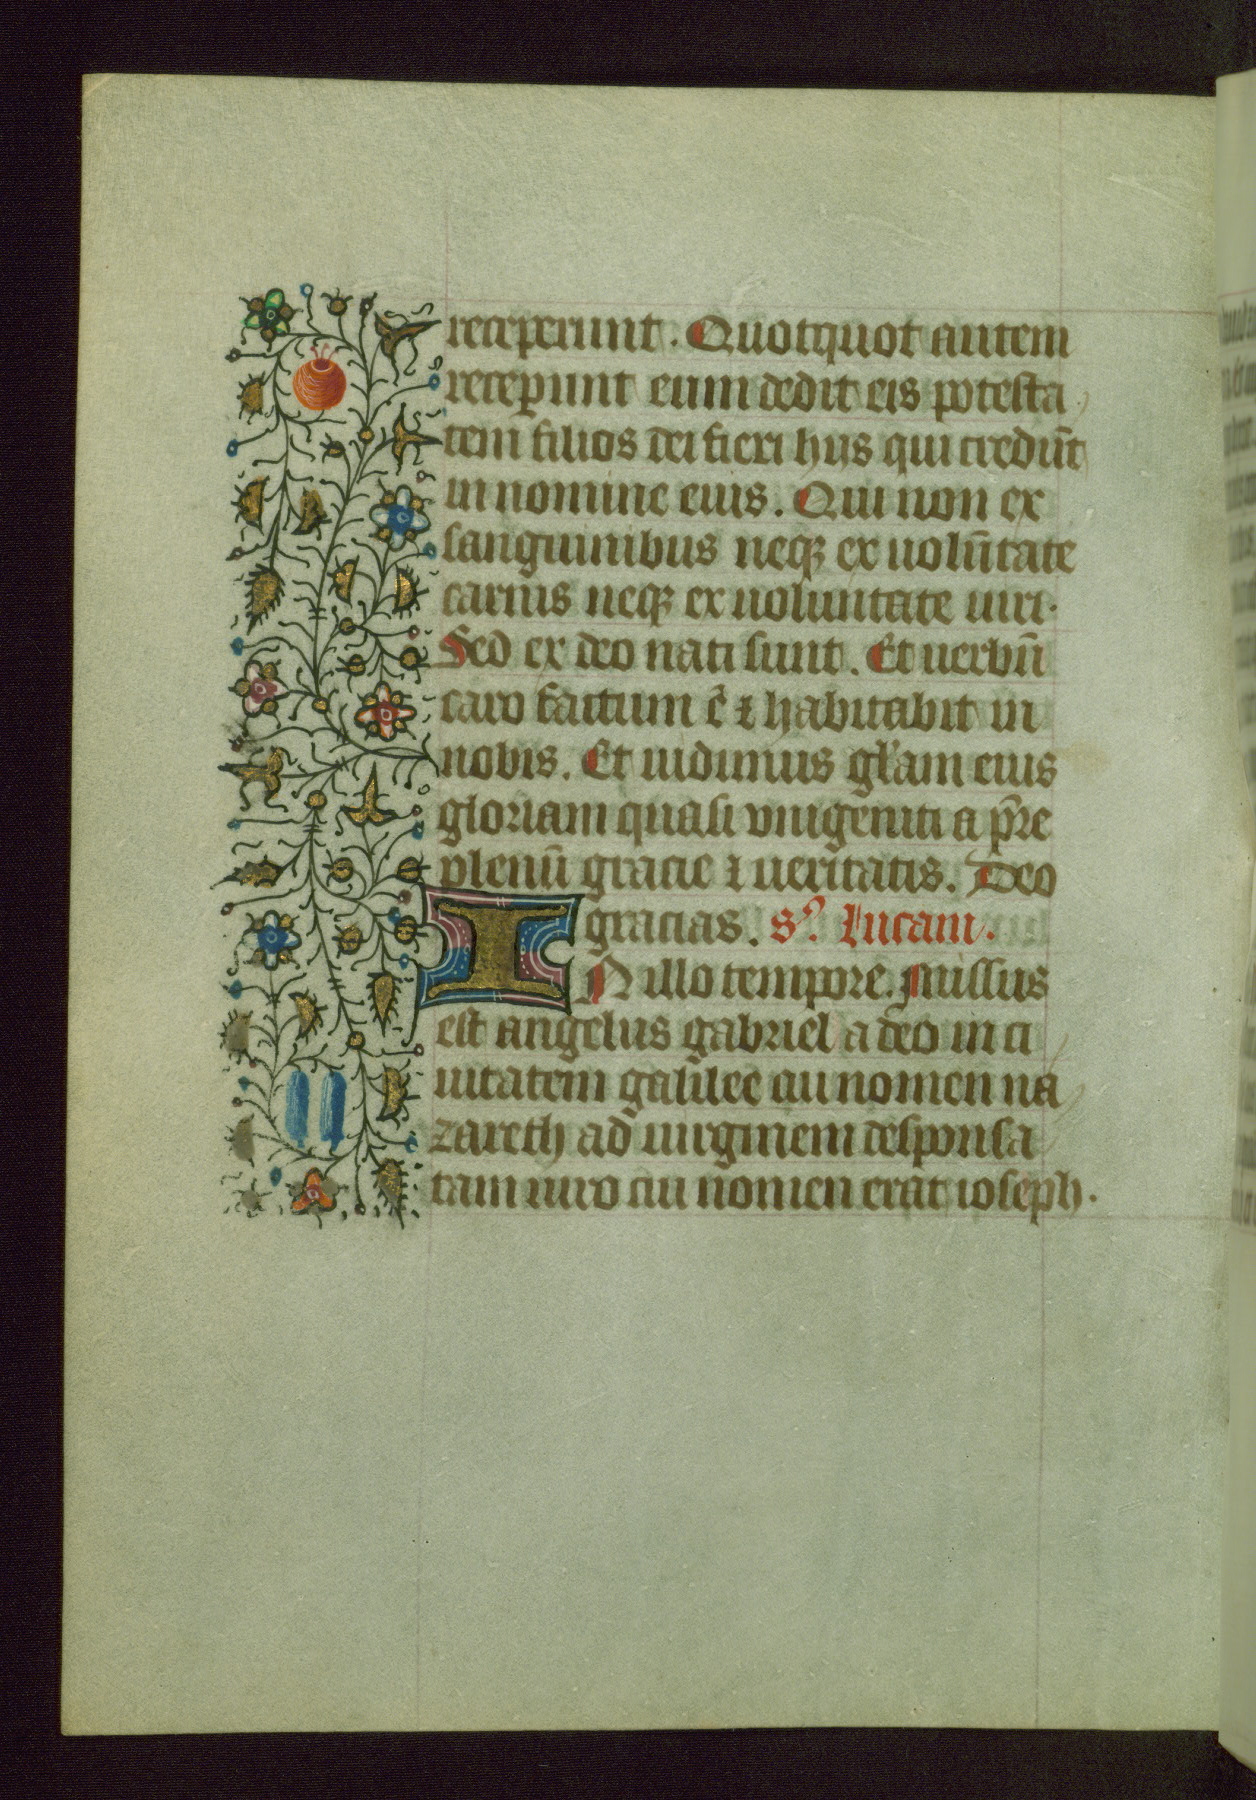 receperunt. Quotquot autem
recepunt eum dedit eis potesta
tem filios dei fieri hiis qui credūt
in nomine eius. Qui non ex
sanguinibus neqꝫ ex uolūtate
carnis neqꝫ ex uoluntate uiri.
Sed ex deo nati sunt. Et uerbū
caro factum ē ⁊ habitabit in
nobis. Et uidimus gl̄am eius
gloriam quasi vnigeniti a pr̄e
plenū gracie ⁊ ueritatis. Deo
gracias. sꝰ. Lucam.
IN illo tempore. missus
est angelus gabriel a deo in ci
uitatem galilee cui nomen na
zareth ad uirginem desponsa
tam uiro cui nomen erat ioseph.